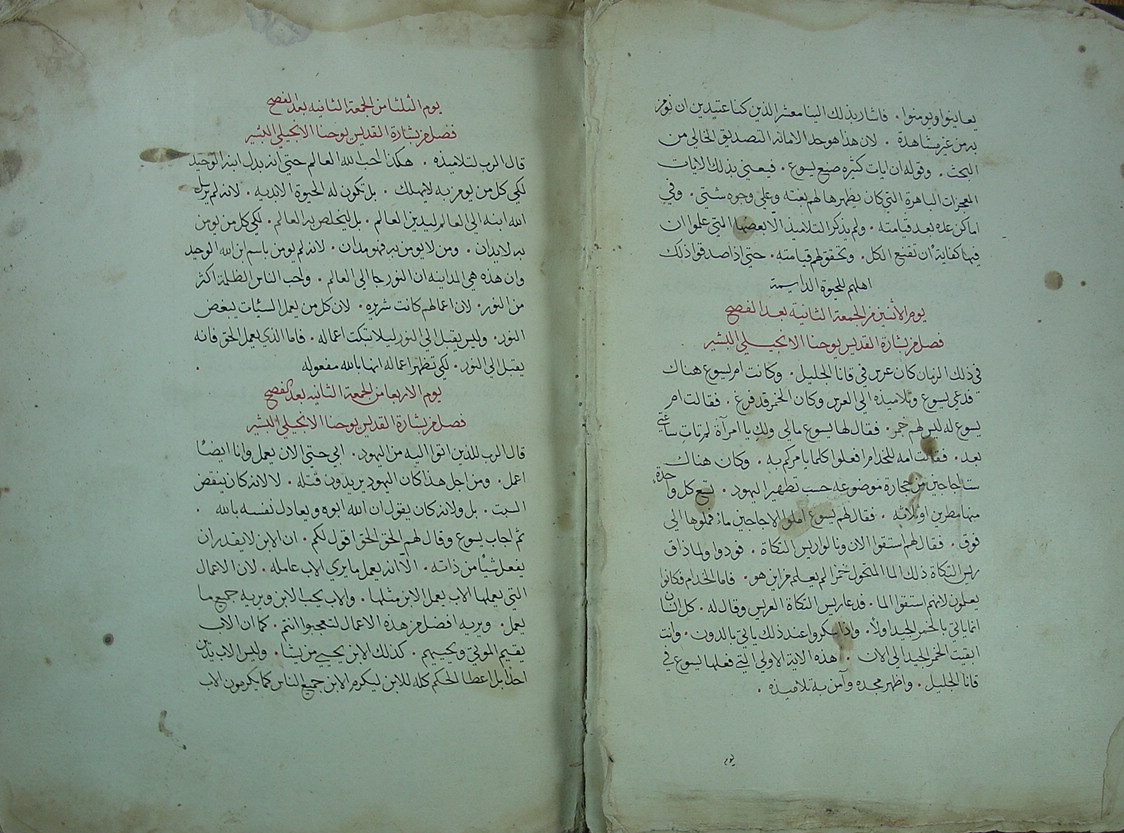 يعاينوا ويومنوا . فاشار بذلك الينا معشر الذين كنا عتيدين ان نومن
به من غير مشاهدة . لان هذا هو حد الامانة التصديق الخالي من
البحث . وقوله ان ايات كثيره صنع يسوع . فيعني بذلك الايات
المعجزات الباهرة التي كان يظهرها لهم بغته وعلي وجوه شتي . وفي
اماكن عده بعد قيامته . ولم يذكر التلاميذ الا بعضها التي علموا ان
فيها كفاية ان تقنع الكل . وتحقق لهم قيامته . حتي اذا صدقوا ذلك
اهلهم للحيوة الدايمة
يوم الاثنين من الجمعة الثانية بعد الفصح
فصل من بشارة القديس يوحنا الانجيلي البشير
في ذلك الزمان كان عرس في قانا الجليل . وكانت ام يسوع هناك
فدعي يسوع وتلاميذه الي العرس وكان الخمر قد فرغ . فقالت ام
يسوع له ليس لهم خمر . فقال لها يسوع مالي ولك يا امرآة لم تات ساعتي
بعد . فقالت امه للخدام افعلوا كلما يامركم به . وكان هناك
ستة اجاجين من حجارة موضوعه حسب تطهير اليهود . يسع كل واحدة
منها مطرين او ثلاثه . فقال لهم يسوع املوا الاجاجين ماءً فملوها الي
فوق . فقال لهم استقوا الان وناولوا ريس التكاة . فودوا ولما ذاق
ريس التكاة ذلك الما المتحول خمرًا لم يعلم من اين هو . فاما الخدام فكانوا
يعلمون لانهم استقوا الما . فدعا ريس التكاة العريس وقال له . كل انسان
انما ياتي بالخمر الجيد اولاً . واذا سكروا عند ذلك ياتي بالدون . وانت
ابقيت الخمر الجيد الي الان . هذه الاية الاولي التي فعلها يسوع في
قانا الجليل . واظهر مجده وآمن به تلاميذه .
يوم
يوم الثلثا من الجمعة الثانيه بعد الفصح
فصل من بشارة القديس يوحنا الانجيلي البشير
قال الرب لتلاميذه . هكذا احب الله العالم حتي انه بدل ابنه الوحيد
لكي كل من يومن به لا يهلك . بل تكون له الحيوة الابديه . لانه لم يرسل
الله ابنه الي العالم ليدين العالم . بل ليخلص به العالم . لكي كل من يومن
به لا يدان . ومن لا يومن به فهو مدان . لانه لم يومن باسم ابن الله الوحيد
وان هذه هي المدينه ان النور جا الي العالم . واحب الناس الظلمة اكثر
من النور . لان اعمالهم كانت شريره . لان كل من يعمل السيات يبغض
النور . وليس يقبل الي النور ليلا تبكت اعماله . فاما الذي يعمل الحق فانه
يقبل الي النور . لكي تظهر اعماله انها بالله مفعوله .
يوم الاربعا من الجمعة الثانيه بعد الفصح
فصل من بشارة القديس يوحنا الانجيلي البشير
قال الرب للذين اتوا اليه من اليهود . ابي حتي الان يعمل وانا ايضًا
اعمل . ومن اجل هذا كان اليهود يريدون قتله . لا لانه كان ينقض
السبت . بل ولانه كان يقول ان الله ابوه ويعادل نفسه بالله .
ثم اجاب يسوع وقال لهم الحق الحق اقول لكم . ان الابن لا يقدر ان
يفعل شيًا من ذاته . الا انه يعمل ما يري الاب عامله . لان الاعمال
التي يعملها الاب يعمل الابن مثلها . والاب يحب الابن ويريه جميع ما
يعمل . ويريه افضل من هذه الاعمال لتعجبوا انتم . كما ان الاب
يقيم الموتي ويحييهم . كذلك الابن يحيي من يشا . وليس الاب يدين
احدًا بل اعطا الحكم كله للابن ليكرم الابن جميع الناس كما يكرمون الاب